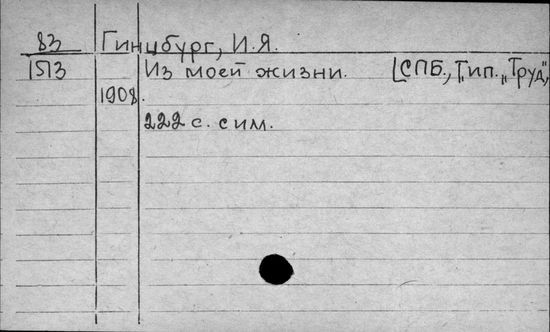 83 Гинцбург, И.Я.
1513 Из моей жизни. [СПБ., Тип. „Труд“,
1908.
222 с. с им.